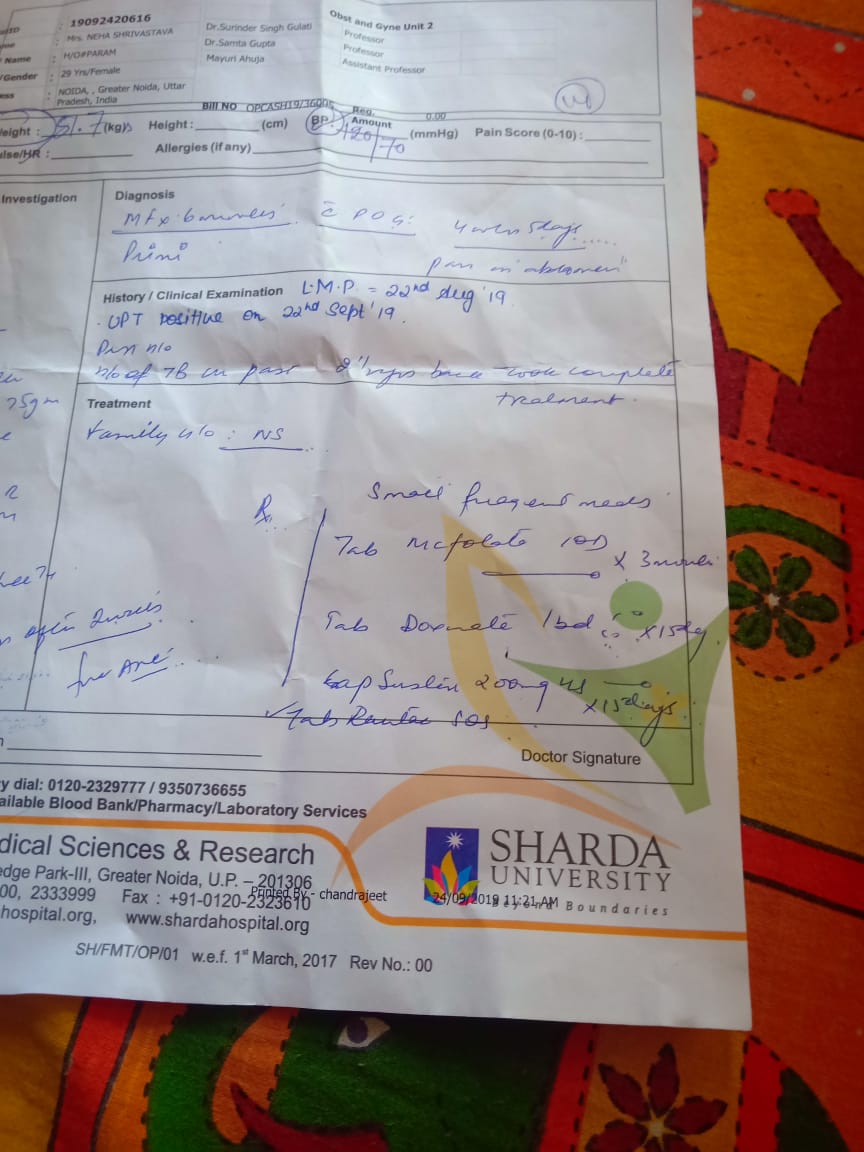 19092420616
Mrs. NEHA SHRIVASTAVA
Name : H/O#PARAM
/Gender : 29 Yrs/Female
ess : NOIDA, , Greater Noida, Uttar
Pradesh, India
Dr.Surinder Singh Gulati
Dr.Samta Gupta
Mayuri Ahuja
Obst and Gyne Unit 2
Professor
Professor
Assistant Professor
Bill NO OPCASH19/36005 Reg. Amount 0.00
eight : 51.7 (kg) Height: (cm) BP. 120/70 (mmHg) Pain Score (0-10) :
ulse/HR : Allergies (if any)
Investigation
Diagnosis
POG: 4 5days
Primi
pain in abdomen
History / Clinical Examination L.M.P = 22nd Aug '19
. UPT positive on 22nd Sept '19.
h/o of TB in past 2 yrs back took complete
treatment.
75gm
Treatment
Family h/o : NS
Rx
Small frequent meals
Tab Mcfolate 1OD X 3
Tab Doxinate 1bd X 15
Cap Susten 200mg HS X 15 days
Tab Rantac SOS
for ANC
Doctor Signature
y dial: 0120-2329777 / 9350736655
ailable Blood Bank/Pharmacy/Laboratory Services
dical Sciences & Research
edge Park-III, Greater Noida, U.P. – 201306
00, 2333999 Fax : +91-0120-2323610
Printed By - chandrajeet
hospital.org, www.shardahospital.org
SHARDA
UNIVERSITY
24/09/2019 11:21 AM
Beyond Boundaries
SH/FMT/OP/01 w.e.f. 1st March, 2017 Rev No.: 00